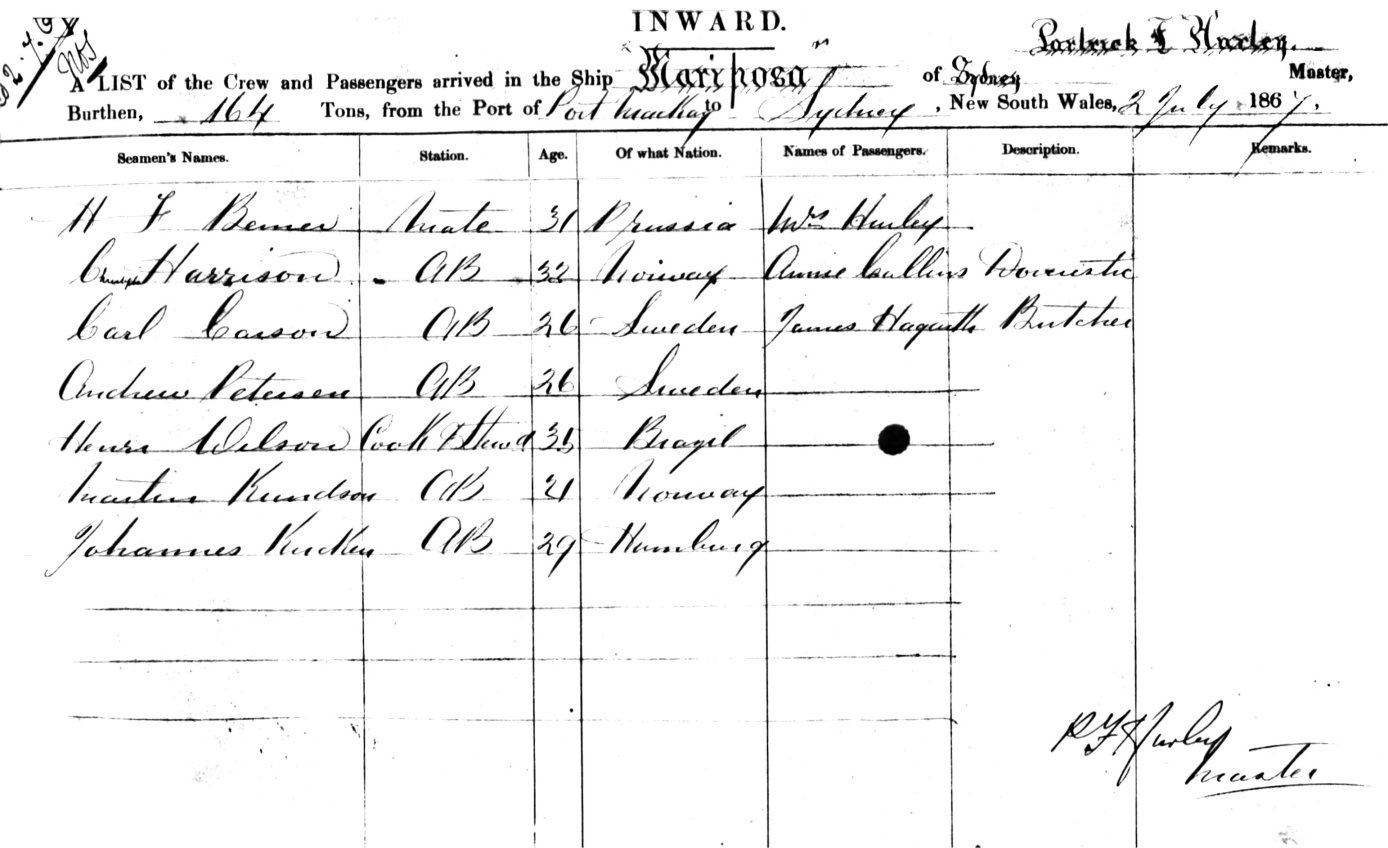 INWARD.
Patrick F Hurley.
A LIST of the Crew and Passengers arrived in the Ship "Mariposa" of Sydney Master,
Burthen, 164 Tons, from the Port of Port Mackay to Sydney, New South Wales, 2 July 1867.
Seamen's Names. Station. Age. Of what Nation. Names of Passengers. Description. Remarks.
H F Bemer Mate 31 Prussia Mrs Hurley
Harrison AB 32 Norway Annie Cullins Domestic
Carl Carson AB 26 Sweden James Hagarth Butcher
Andrew Petersen AB 26 Sweden
Henri Wilson Cook & Stewd 35 Brazil
Martin Kundson AB 21 Norway
Johannes AB 29 Hamburg
P F Hurley
Master